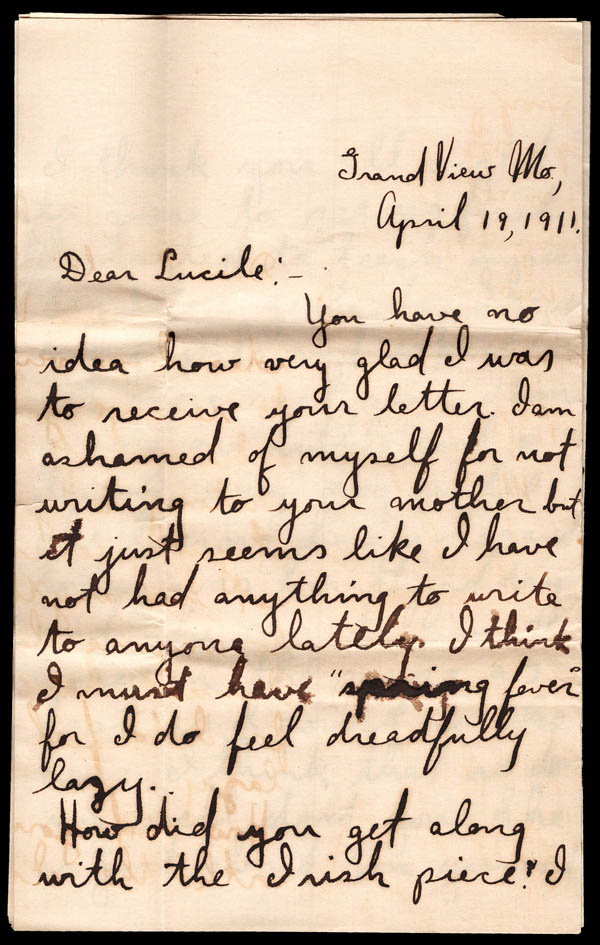 Grand View Mo.,
April 19, 1911.
Dear Lucile:-
You have no
idea how very glad I was
to receive your letter. I am
ashamed of myself for not
writing to your mother but
it just seems like I have
not had anything to write
to anyone lately. I think
I must have "spring fever"
for I do feel dreadfully
lazy.
How did you get along
with the Irish piece? I